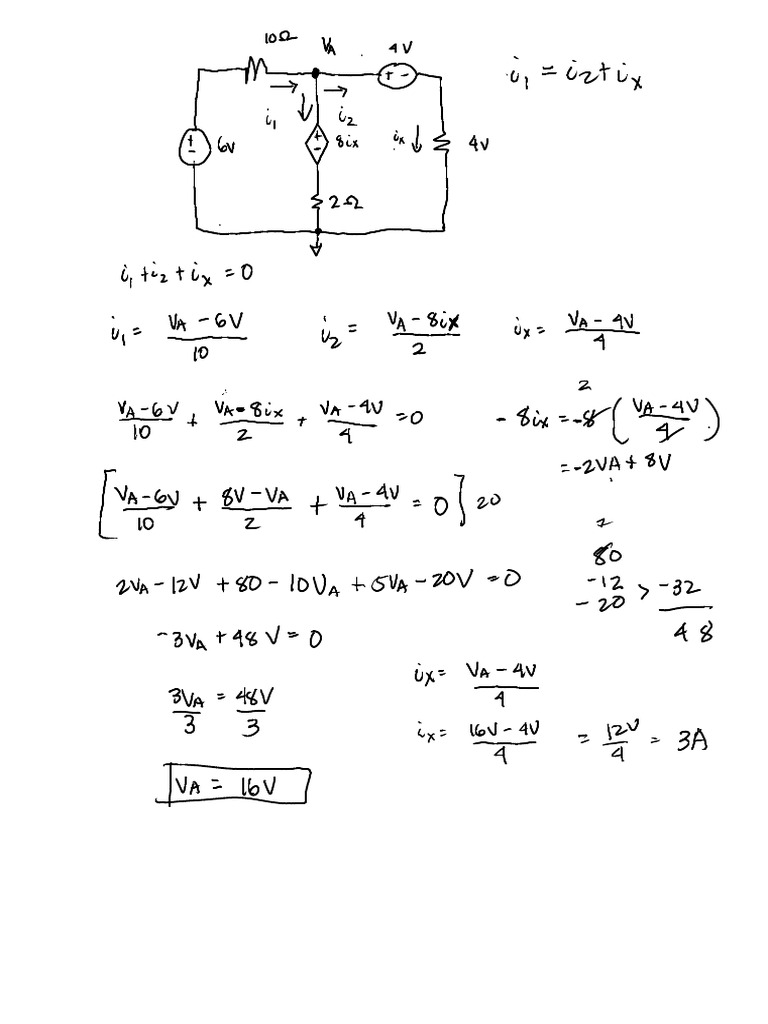 10Ω VA 4V
i1 = i2 + ix
i1 i2
6V 8ix ix 4V
2Ω
i1 + i2 + ix = 0
i1 = VA - 6V / 10 i2 = VA - 8ix / 2 ix = VA - 4V / 4
VA - 6V / 10 + VA - 8ix / 2 + VA - 4V / 4 = 0 - 8ix = -8 ( VA - 4V / 4 ) 2
= -2VA + 8V
[ VA - 6V / 10 + 8V - VA / 2 + VA - 4V / 4 = 0 ] 20
2VA - 12V + 80 - 10VA + 5VA - 20V = 0
80
-12
-20 > -32
48
-3VA + 48V = 0
3VA / 3 = 48V / 3
VA = 16V
ix = VA - 4V / 4
ix = 16V - 4V / 4 = 12V / 4 = 3A